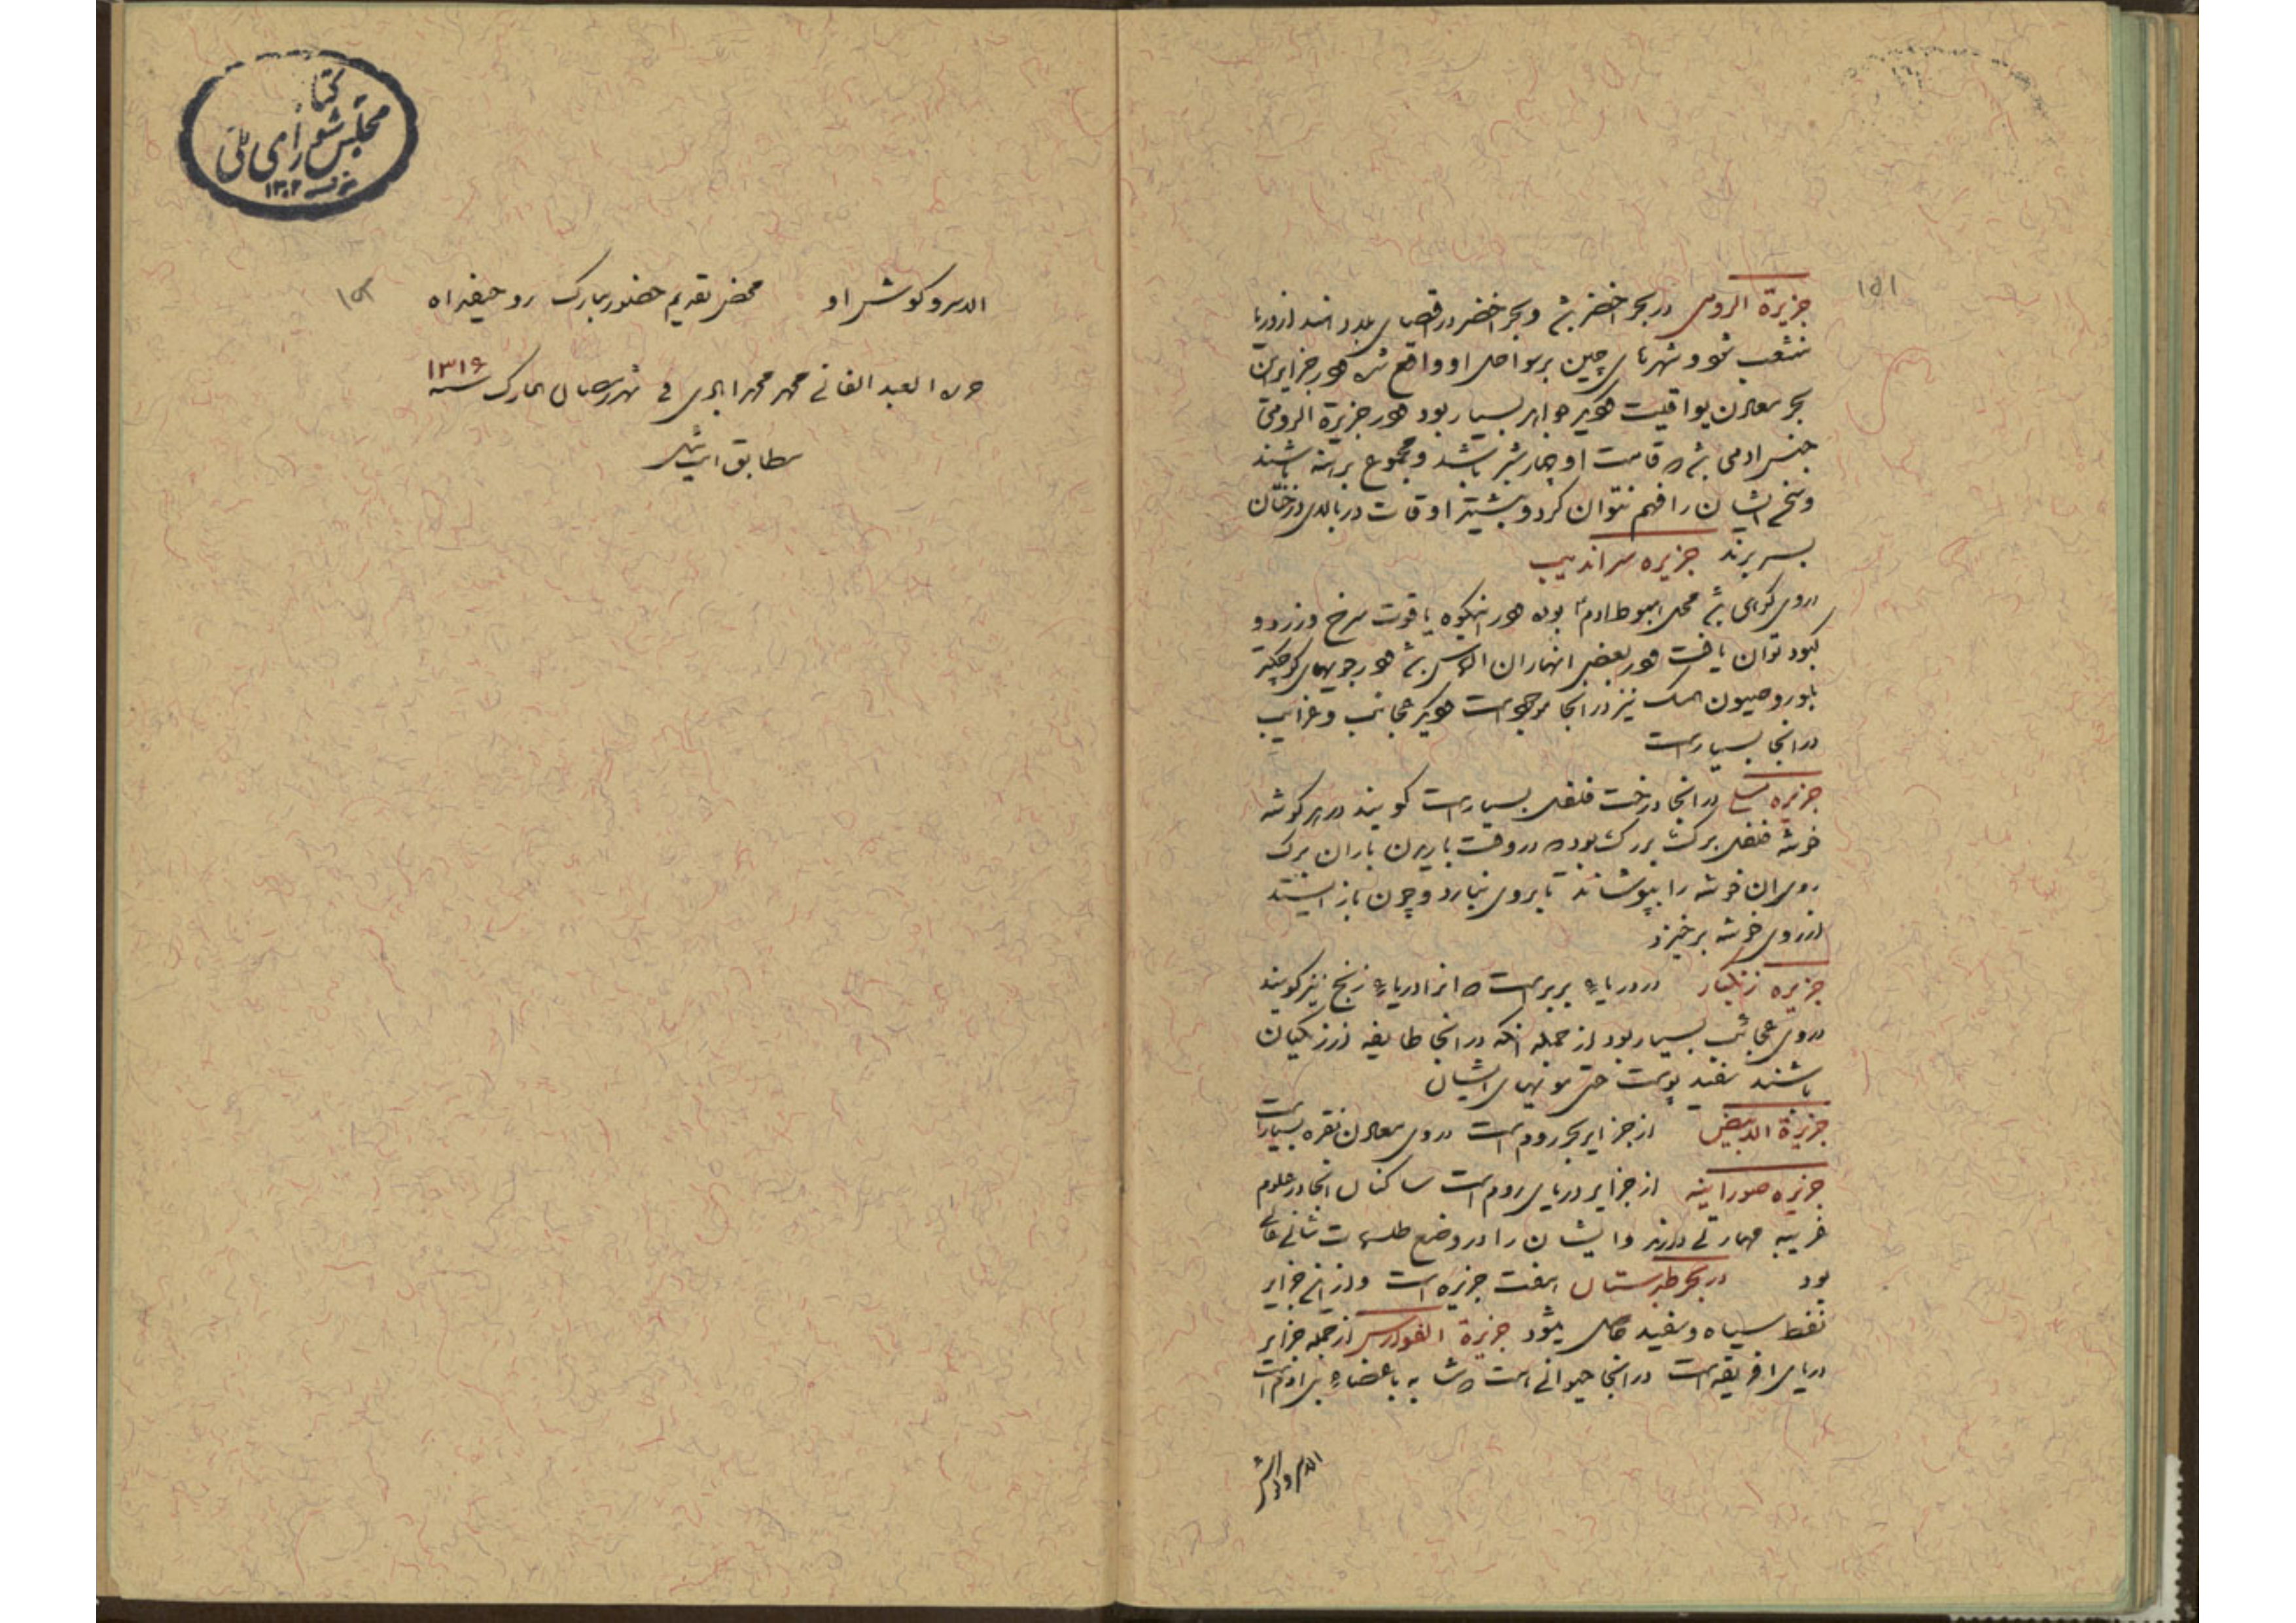 ۱۵۱
جزیرة الرومی در بحر اخضر بود و بحر اخضر در اقصای بلاد هند از دریا
منشعب شود و شهرهای چین بر سواحل او واقع شده و در جزایر این
بحر معادن یواقیت و دیگر جواهر بسیار بود و در جزیرة الرومی
جنس ادمی بود که قامت او چهار شبر باشد و مجموع برهنه باشند
و سخن ایشان را فهم نتوان کرد و بیشتر اوقات در بالای درختان
بسر برند جزیره سراندیب
در وی کوهی بود محل هبوط ادم بوده و در انکوه یاقوت سرخ و زرد و
کبود توان یافت و در بعضی انهار ان الماس بود و در جویهای کوچکتر
بلور و مسک نیز در انجا موجود است و دیگر عجائب و غرایب
در انجا بسیار است
جزیره در انجا درخت فلفل بسیار است کویند در هر کوشه
خوشه فلفل برکی بزرک بود که در وقت باریدن باران برک
روی ان خوشه را بپوشاند تا بر وی نبارد و چون باز ایستد
از روی خوشه برخیزد
جزیره زنکبار در دریاء بربر است که انرا دریاء زنج نیز کویند
در وی عجائب بسیار بود از جمله انکه در انجا طایفه از زنکیان
باشند سفید پوست حتی مویهای ایشان
جزیرة الابیض از جزایر بحر روم است در وی معادن نقره بسیار است
جزیره صوراینه از جزایر دریای روم است ساکنان انجا در علوم
غریبه مهارتی دارند و ایشان را در وضع طلسمات شانی عالی
بود در بحر طبرستان هفت جزیره است و از انی جزایر
نفط سیاه و سفید حاصل میشود جزیرة از جمله جزایر
دریای افریقیه است در انجا حیوانی است که مشابه باعضاء بنی ادم است
الا سر و
کتابخانه
مجلس شورای ملی
۱۳۰۲
الا سر و کوش او محض تقدیم حضور مبارک
حرره العبد الفانی محمد فی شهر رمضان المبارک سنه ۱۳۱۶
مطابق ایت ئیل